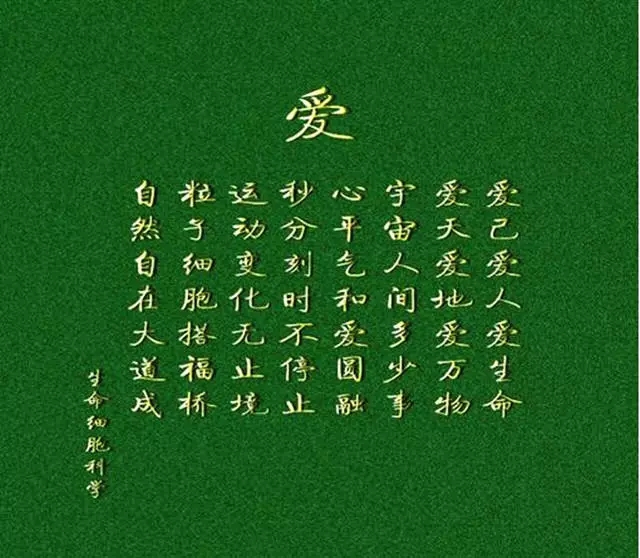 爱
爱己爱人爱生命
爱天爱地爱万物
宇宙人间多少事
心平气和爱圆融
秒分刻时不停止
运动变化无止境
粒子细胞搭福桥
自然自在大道成
生命细胞科学